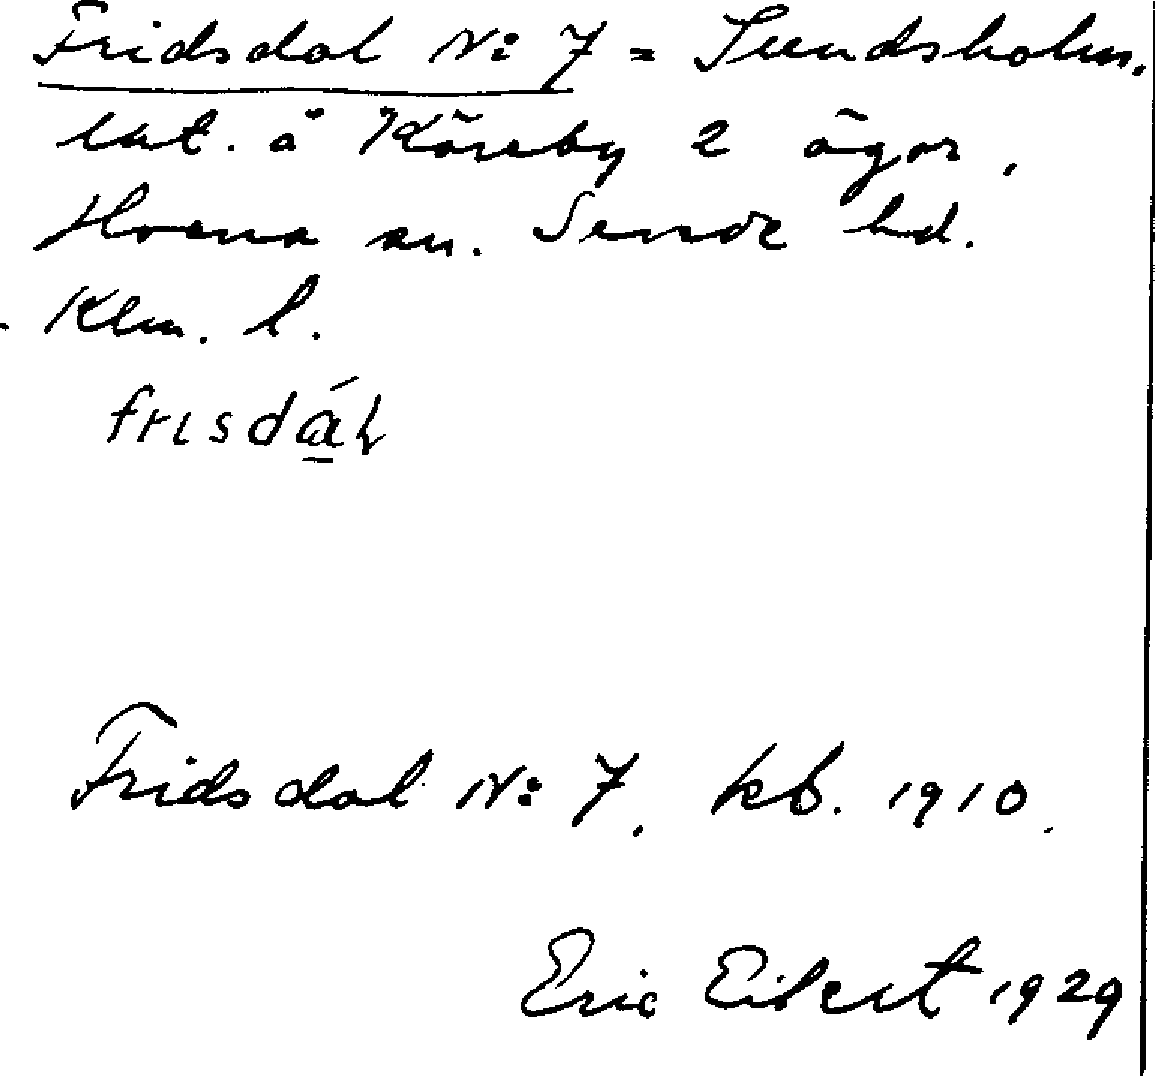 Fridsdal N: 7 = Sundsholm.
lht. å Kåreby 2 ägor,
Hvena sn. Sevede hd.
Klm. l.
frisdál
Fridsdal N: 7. kb. 1910.
Eric Eibert 1929